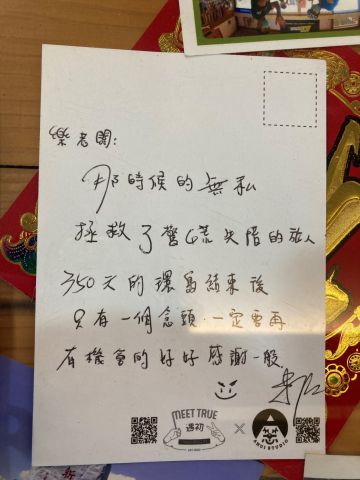 樂老闆:
那時候的無私
拯救了驚慌失措的旅人
350天的環島結束後
只有一個念頭.一定要再
有機會的好好感謝一般
MEET TRUE
遇初
×
STUDIO